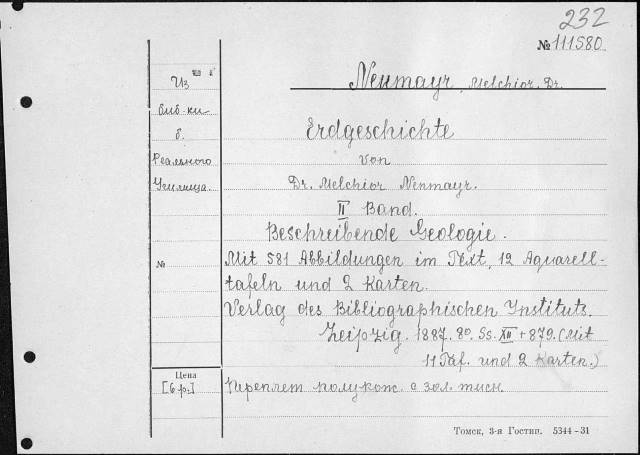 232
№ 111580
Neumayr, Melchior, Dr.
Из
биб-ки
б.
Реального
Училища.
Erdgeschichte
von
Dr. Melchior Neumayr.
II Band.
Beschreibende Geologie.
№
Mit 581 Abbildungen im Text, 12 Aquarell-
tafeln und 2 Karten.
Verlag des Bibliographischen Instituts.
Leipzig. 1887. 8º. Ss. XII + 879. (Mit
11 Taf. und 2 Karten.)
Цена
[6 р.]
Переплет полукож. с зол. тисн.
Томск, 3-я Гостип. 5344—31